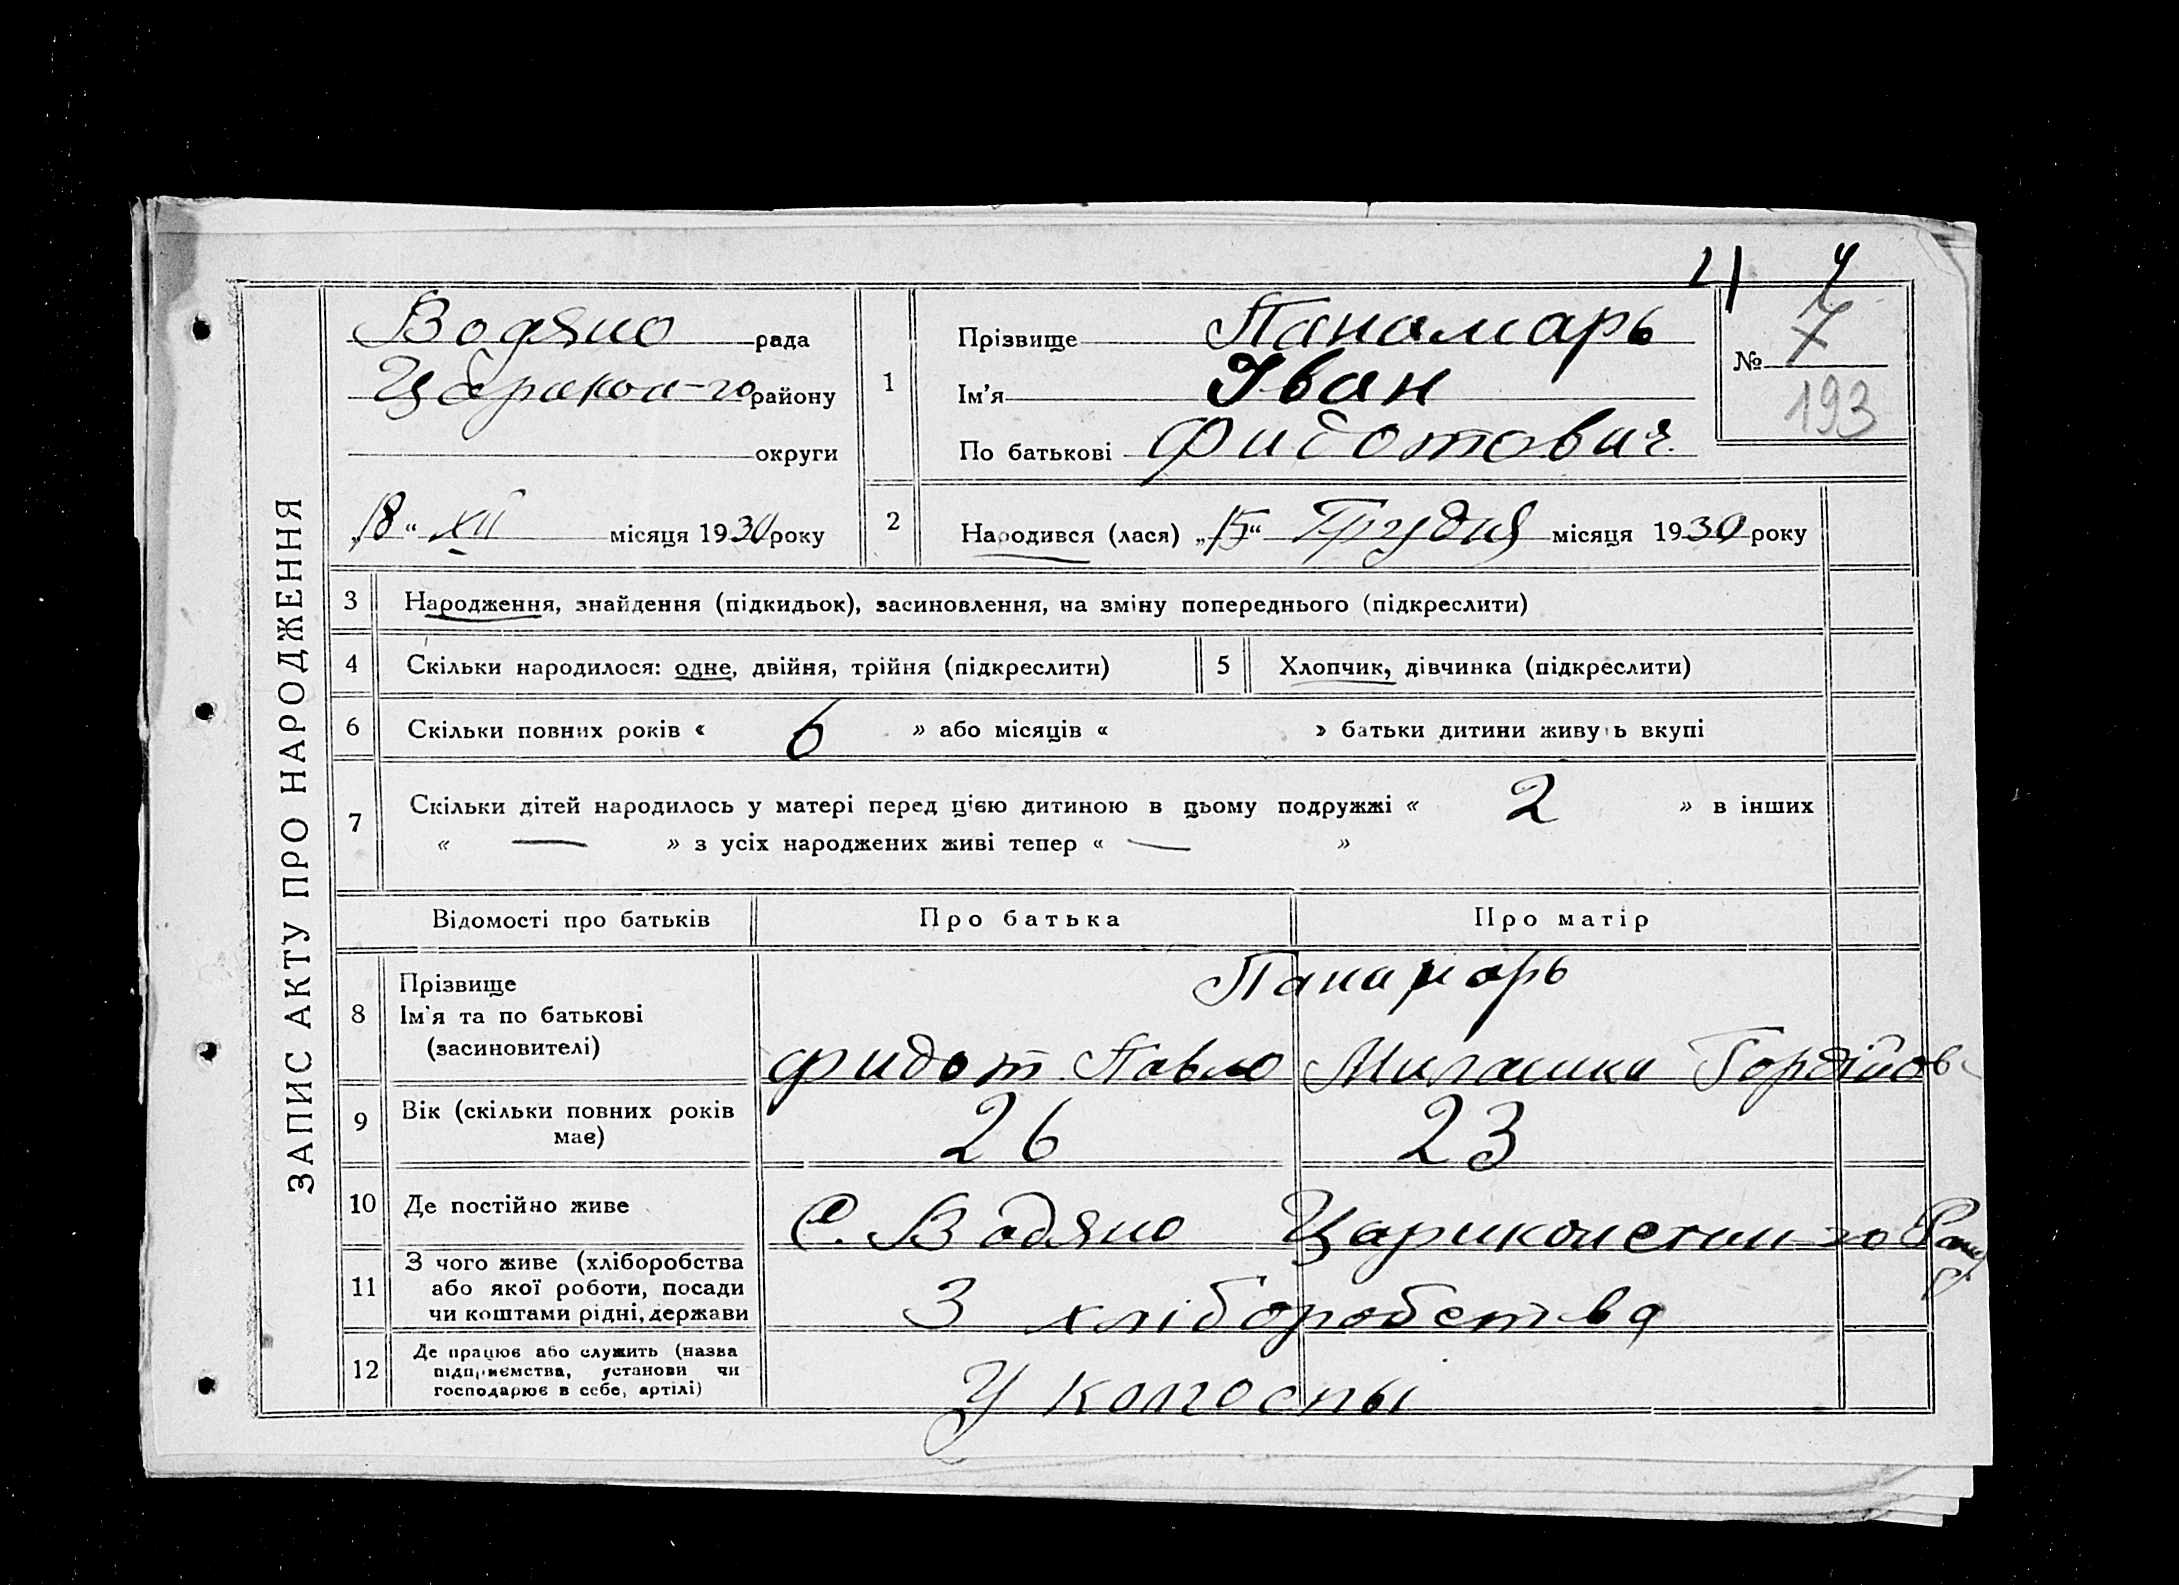 4 4
ЗАПИС АКТУ ПРО НАРОДЖЕННЯ
Водяно рада
Царикон-го району
округи
„18“ XII місяця 1930 року
1
Прізвище Панамарь
Ім'я Іван
По батькові Фидотович
№ 7
193
2 Народився (лася) „15“ Грудня місяця 1930 року
3 Народження, знайдення (підкидьок), засиновлення, на зміну попереднього (підкреслити)
4 Скільки народилося: одне, двійня, трійня (підкреслити) 5 Хлопчик, дівчинка (підкреслити)
6 Скільки повних років « 6 » або місяців « » батьки дитини живуть вкупі
7 Скільки дітей народилось у матері перед цією дитиною в цьому подружжі « 2 » в інших
« — » з усіх народжених живі тепер « — »
Відомості про батьків Про батька Про матір
8 Прізвище
Ім'я та по батькові
(засиновителі)
Панамарь
Фидот Павло Милашка Гордійов
9 Вік (скільки повних років
має)
26 23
10 Де постійно живе С. Водяно Цариконстан-го
11 З чого живе (хліборобства
або якої роботи, посади
чи коштами рідні, держави
З хліборобства
12 Де працює або служить (назва
підприємства, установи чи
господарює в себе, артілі)
У колгоспы